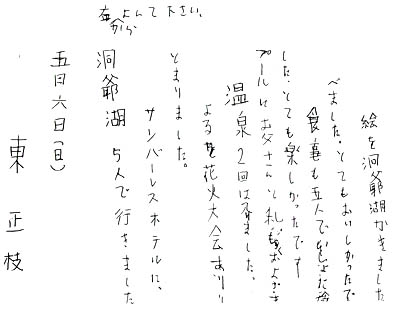 左からよんで下さい。
東 正枝
五月六日(日)
洞爺湖 5人で行きました
サンパレスホテルに、
とまりました。
よるを花火大会あり
温泉2回はいました。
プールはお父さんと
した。とても楽しかったです
食事も五人で
べました。とてもおいしかったで
絵を洞爺湖かきました